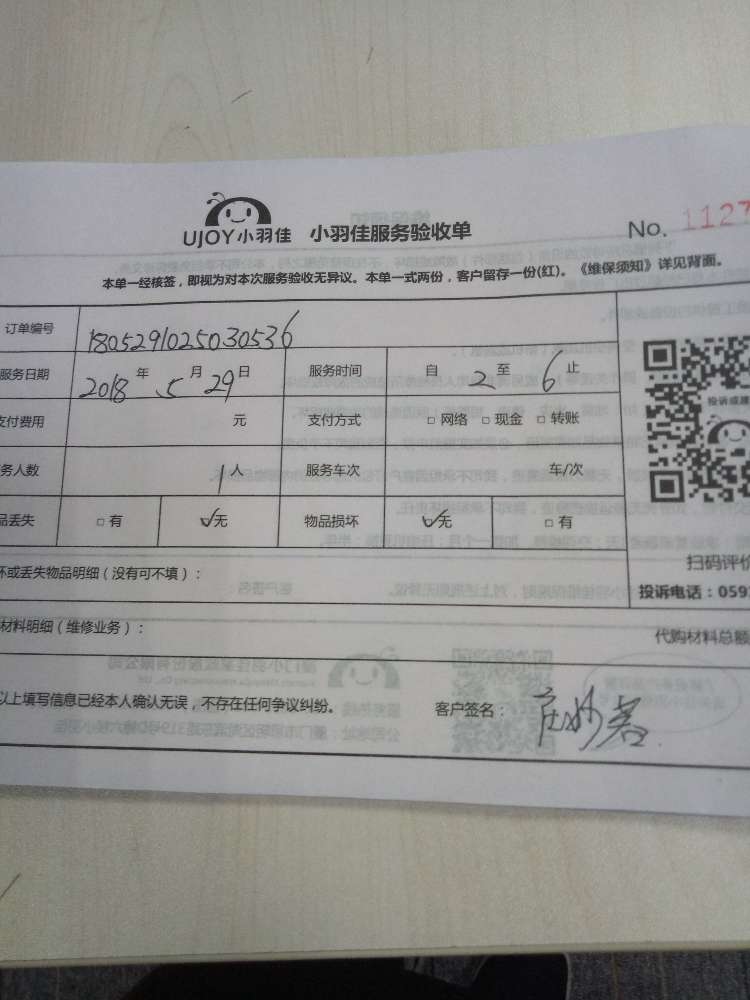 UJOY小羽佳 小羽佳服务验收单 No. 1127
本单一经核签，即视为对本次服务验收无异议。本单一式两份，客户留存一份(红)。《维保须知》详见背面。
订单编号 1805291025030536
服务日期 2018 年 5 月 29 日 服务时间 自 2 至 6 止
支付费用 元 支付方式 □ 网络 □ 现金 □ 转账
务人数 1 人 服务车次 车/次
品丢失 □ 有 ☑无 物品损坏 ☑无 □ 有
投诉或建
扫码评价
坏或丢失物品明细（没有可不填）：
投诉电话：059
材料明细（维修业务）：
代购材料总额
以上填写信息已经本人确认无误，不存在任何争议纠纷。 客户签名：庄妙